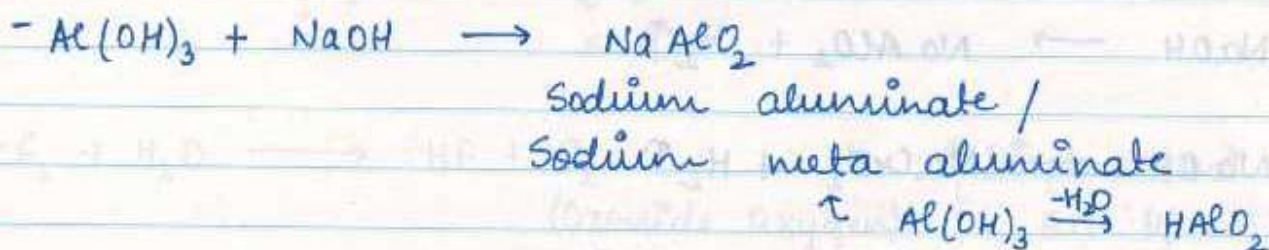 - Al(OH)₃ + NaOH ⟶ NaAlO₂
Sodium aluminate /
Sodium meta aluminate
↑ Al(OH)₃ -H₂O→ HAlO₂